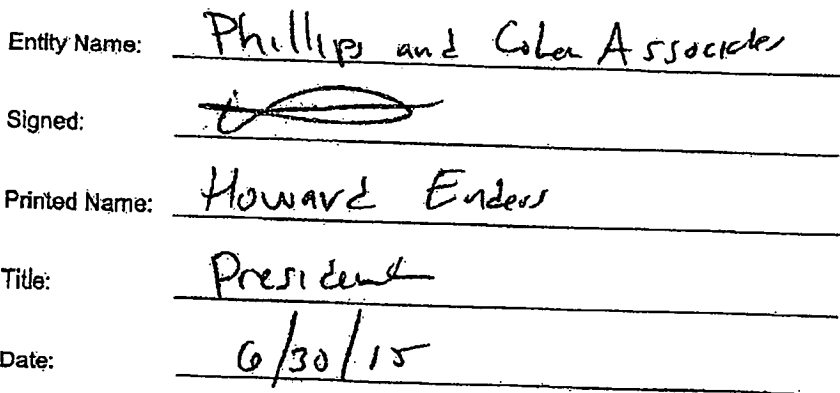 Entity Name: Phillips and Cohen Associates
Signed:
Printed Name: Howard Enders
Title: President
Date: 6/30/15